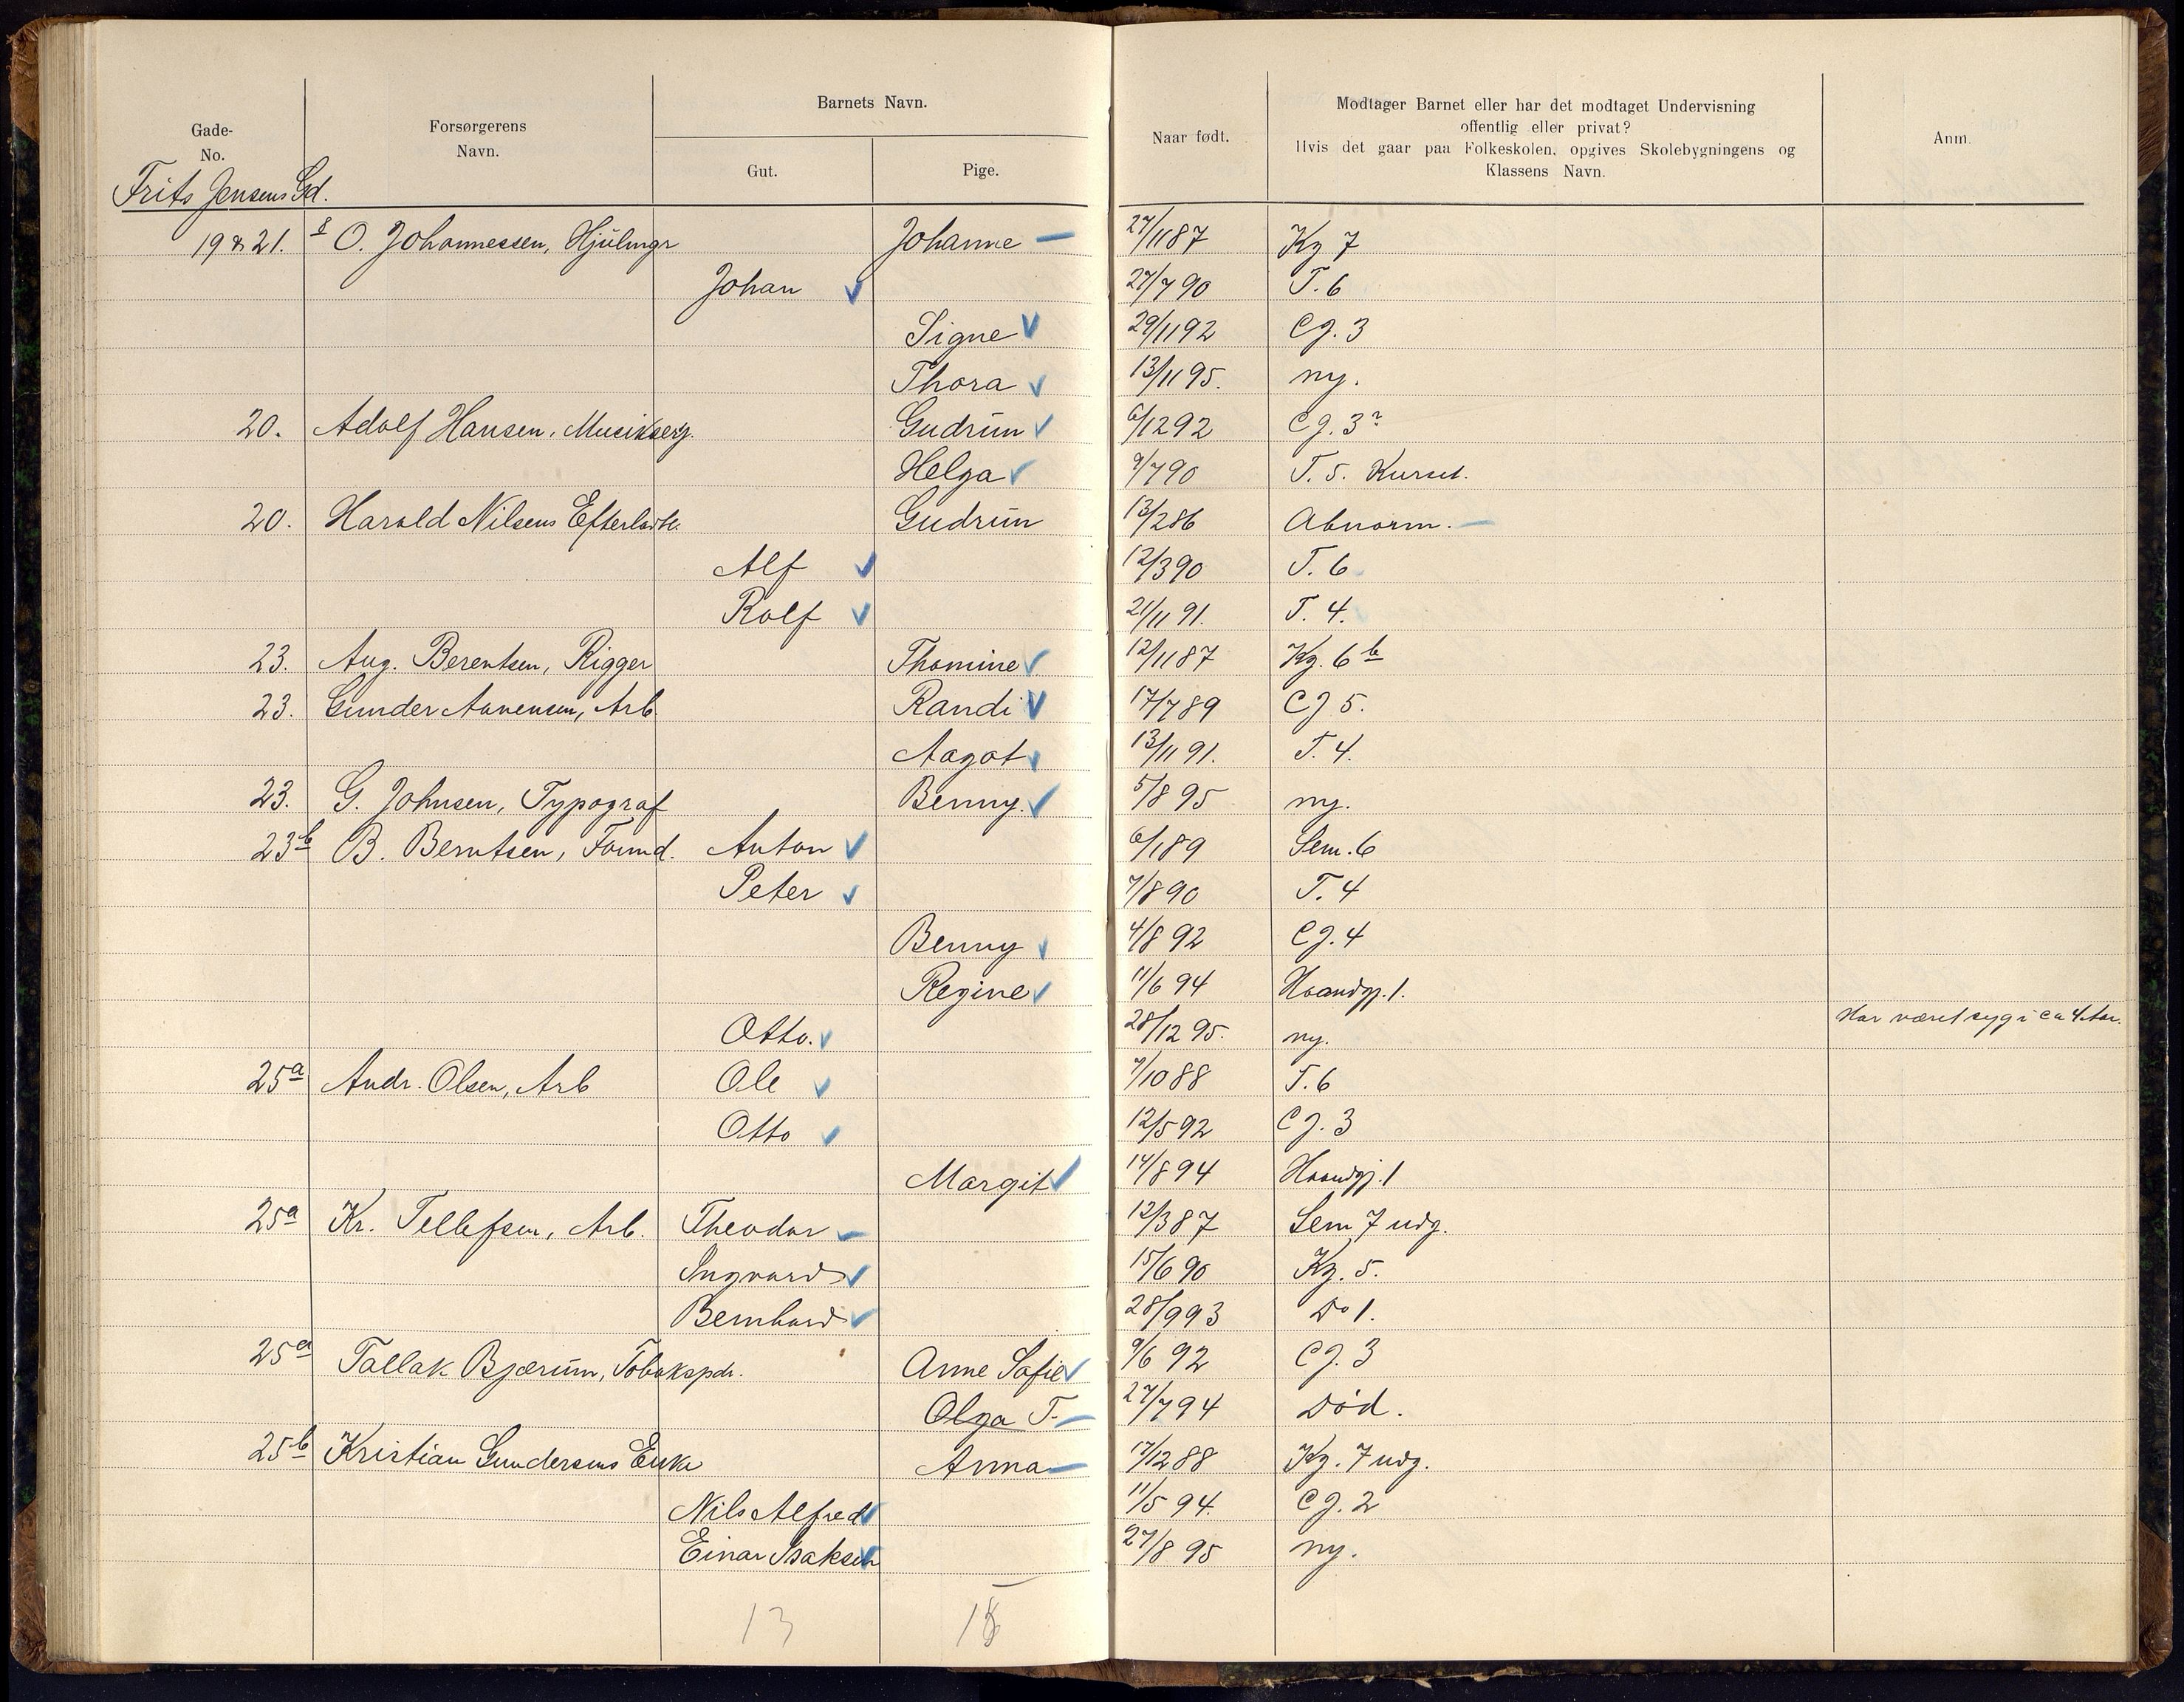 Gade-
No.
Forsørgerens
Navn.
Barnets Navn.
Gut.
Pige.
Naar født.
Modtager Barnet eller har det modtaget Undervisning
offentlig eller privat?
Hvis det gaar paa Folkeskolen, opgives Skolebygningens og
Klassens Navn.
Anm.
Frits Jensens Gd.
19 & 21. O. Johannessen, Johanne — 27/11 87 Kg 7
Johan 27/7 90 T. 6
Signe 29/11 92 CJ. 3
Thora 13/11 95. ny.
20. Adolf Hansen, Gudrun 6/12 92 CJ. 3
Helga 9/7 90 T. 5.
20. Harald Nilsens Gudrun 13/2 86 Abnorm. —
Alf 12/3 90 T. 6
Rolf 21/11 91. T. 4.
23. Aug. Berentsen, Rigger Thomine 12/11 87 Kg. 6 b
23. Gunder Arb. Randi 17/7 89 CJ 5.
Aagot 13/11 91. T. 4.
23. G. Johnsen, Typograf Benny. 5/8 95 ny.
23b B. Berntsen, Anton 6/1 89 Sem. 6
Peter 7/8 90 T. 4
Benny 4/8 92 CJ. 4
Regine 11/6 94 Haandgj. 1.
Otto. 28/12 95. ny. Har været syg i ca 4 Aar.
25a Andr. Olsen, Arb Ole 7/10 88 T. 6
Otto 12/5 92 CJ. 3
Margit 14/8 94 Haandgj. 1
25a Kr. Tellefsen, Arb. Theodor 12/3 87 Sem 7 udg.
Ingvard 15/6 90 Kg. 5.
Bernhard 28/9 93 Do 1.
25a Tallak Bjærum, Tobakspdr. Anne Sofie 9/6 92 CJ. 3
Olga T. — 27/7 94 Død.
25b Kristian Gundersens Enke Anna — 17/12 88 Kg. 7 udg.
Nils Alfred 11/5 94. CJ. 2
Einar Isaksen 27/8 95 ny.
13